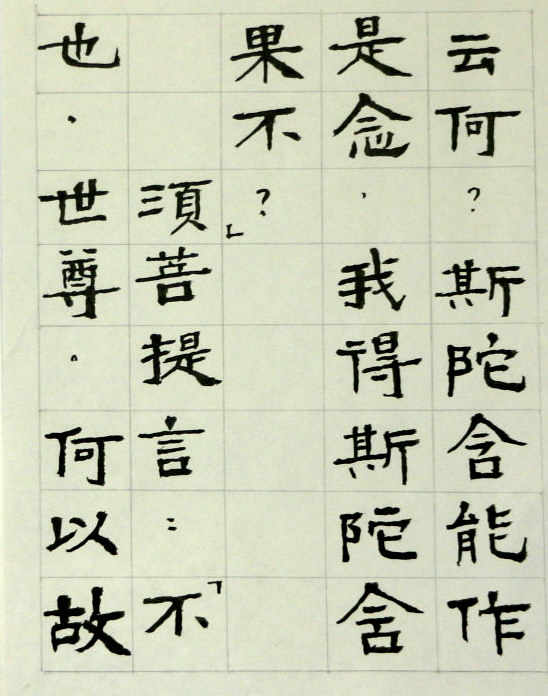 云何?斯陀含能作
是念,我得斯陀含
果不?」
須菩提言:「不
也.世尊。何以故